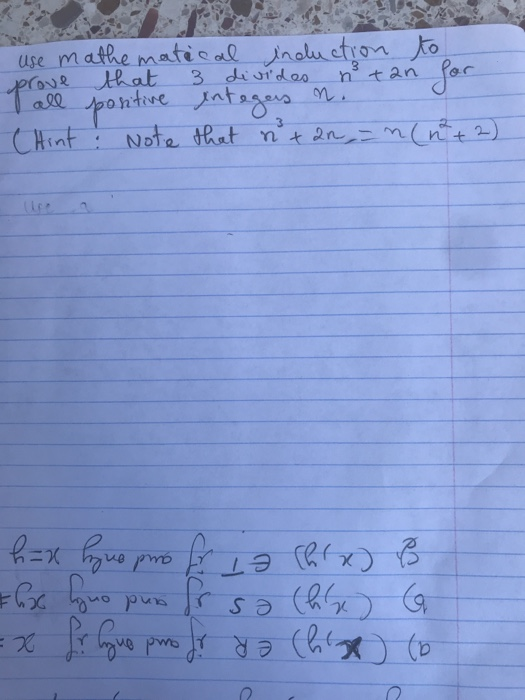 use mathematical induction to
prove that 3 divides n³ + 2n for
all positive integers n.
(Hint : Note that n³ + 2n = n(n² + 2)
a) (x,y) ∈ R if and only if x =
b) (x,y) ∈ S if and only xy ≠
(x,y) ∈ T if and only x = y